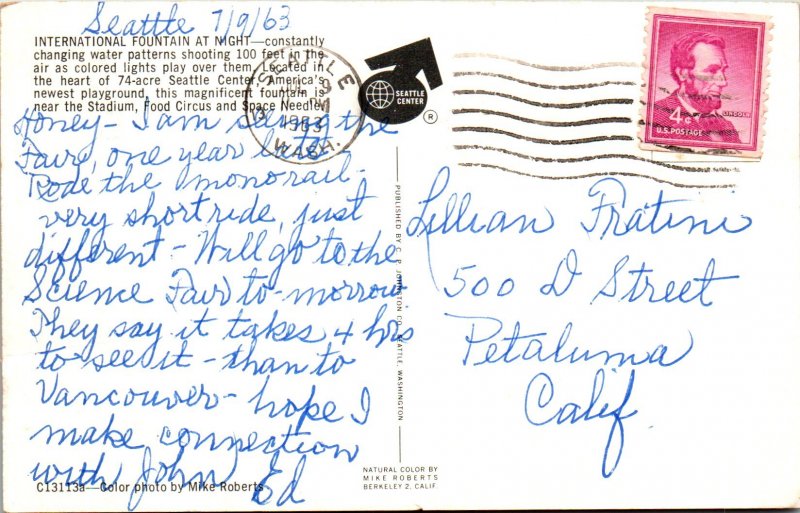 Seattle 7/9/63
INTERNATIONAL FOUNTAIN AT NIGHT—constantly
changing water patterns shooting 100 feet in the
air as colored lights play over them. Located in
the heart of 74-acre Seattle Center, America's
newest playground, this magnificent fountain is
near the Stadium, Food Circus and Space Needle.
Honey - I am seeing the
Fair, one year late.
Rode the monorail -
very short ride, just
different - Will go to the
Science Fair to-morrow
They say it takes 4 hrs
to see it - than to
Vancouver - hope I
make connection
with John Ed
C13113a—Color photo by Mike Roberts
SEATTLE
1963
WASH.
SEATTLE
CENTER
®
PUBLISHED BY C. P. JOHNSTON CO. SEATTLE, WASHINGTON
NATURAL COLOR BY
MIKE ROBERTS
BERKELEY 2, CALIF.
LINCOLN
4¢
U.S. POSTAGE
Lillian Fratini
500 D Street
Petaluma
Calif.